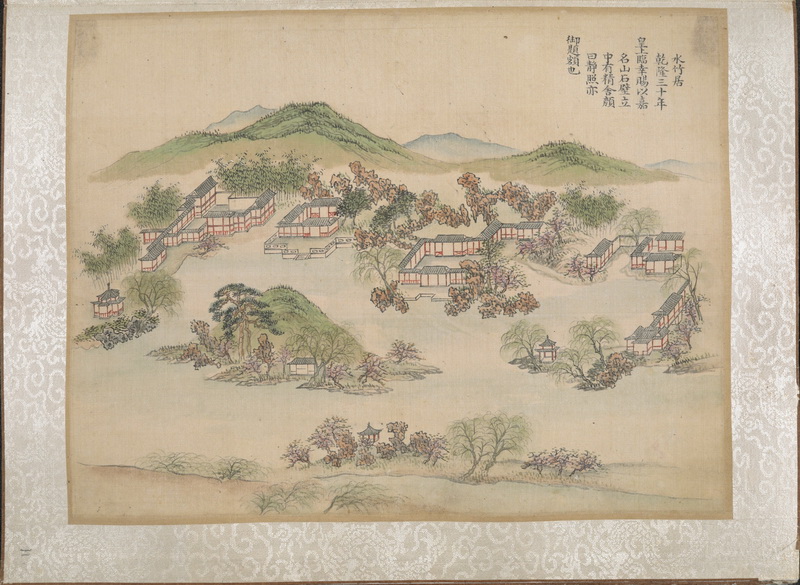 水竹居
乾隆三十年
皇上臨幸賜以嘉
名山石壁立
中有精舍顏
曰靜照亦
御題額也